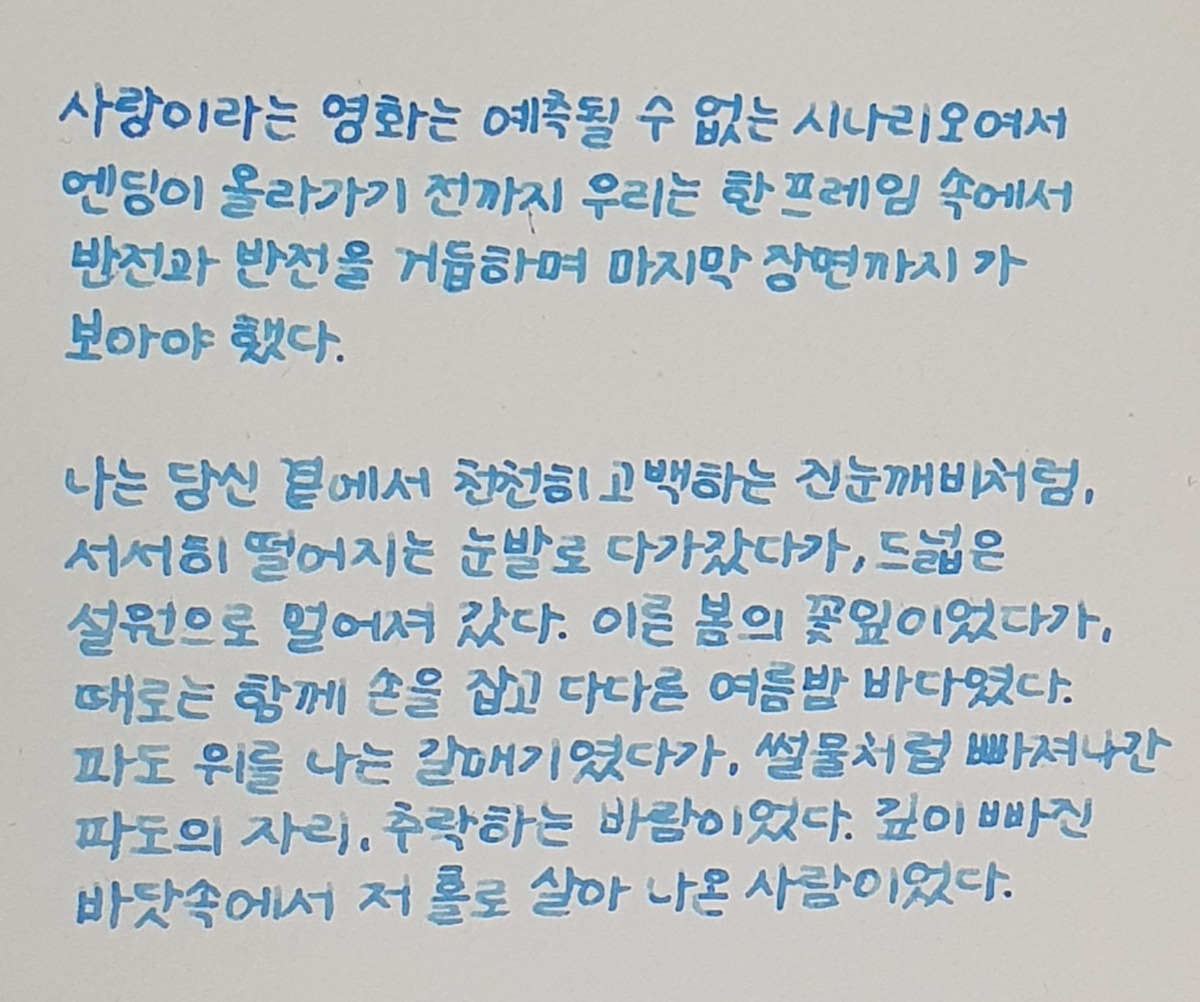 사랑이라는 영화는 예측될 수 없는 시나리오여서
엔딩이 올라가기 전까지 우리는 한 프레임 속에서
반전과 반전을 거듭하며 마지막 장면까지 가
보아야 했다.
나는 당신 곁에서 천천히 고백하는 진눈깨비처럼,
서서히 떨어지는 눈발로 다가갔다가, 드넓은
설원으로 멀어져 갔다. 이른 봄의 꽃잎이었다가,
때로는 함께 손을 잡고 다다른 여름밤 바다였다.
파도 위를 나는 갈매기였다가, 썰물처럼 빠져나간
파도의 자리, 추락하는 바람이었다. 깊이 빠진
바닷속에서 저 홀로 살아 나온 사람이었다.